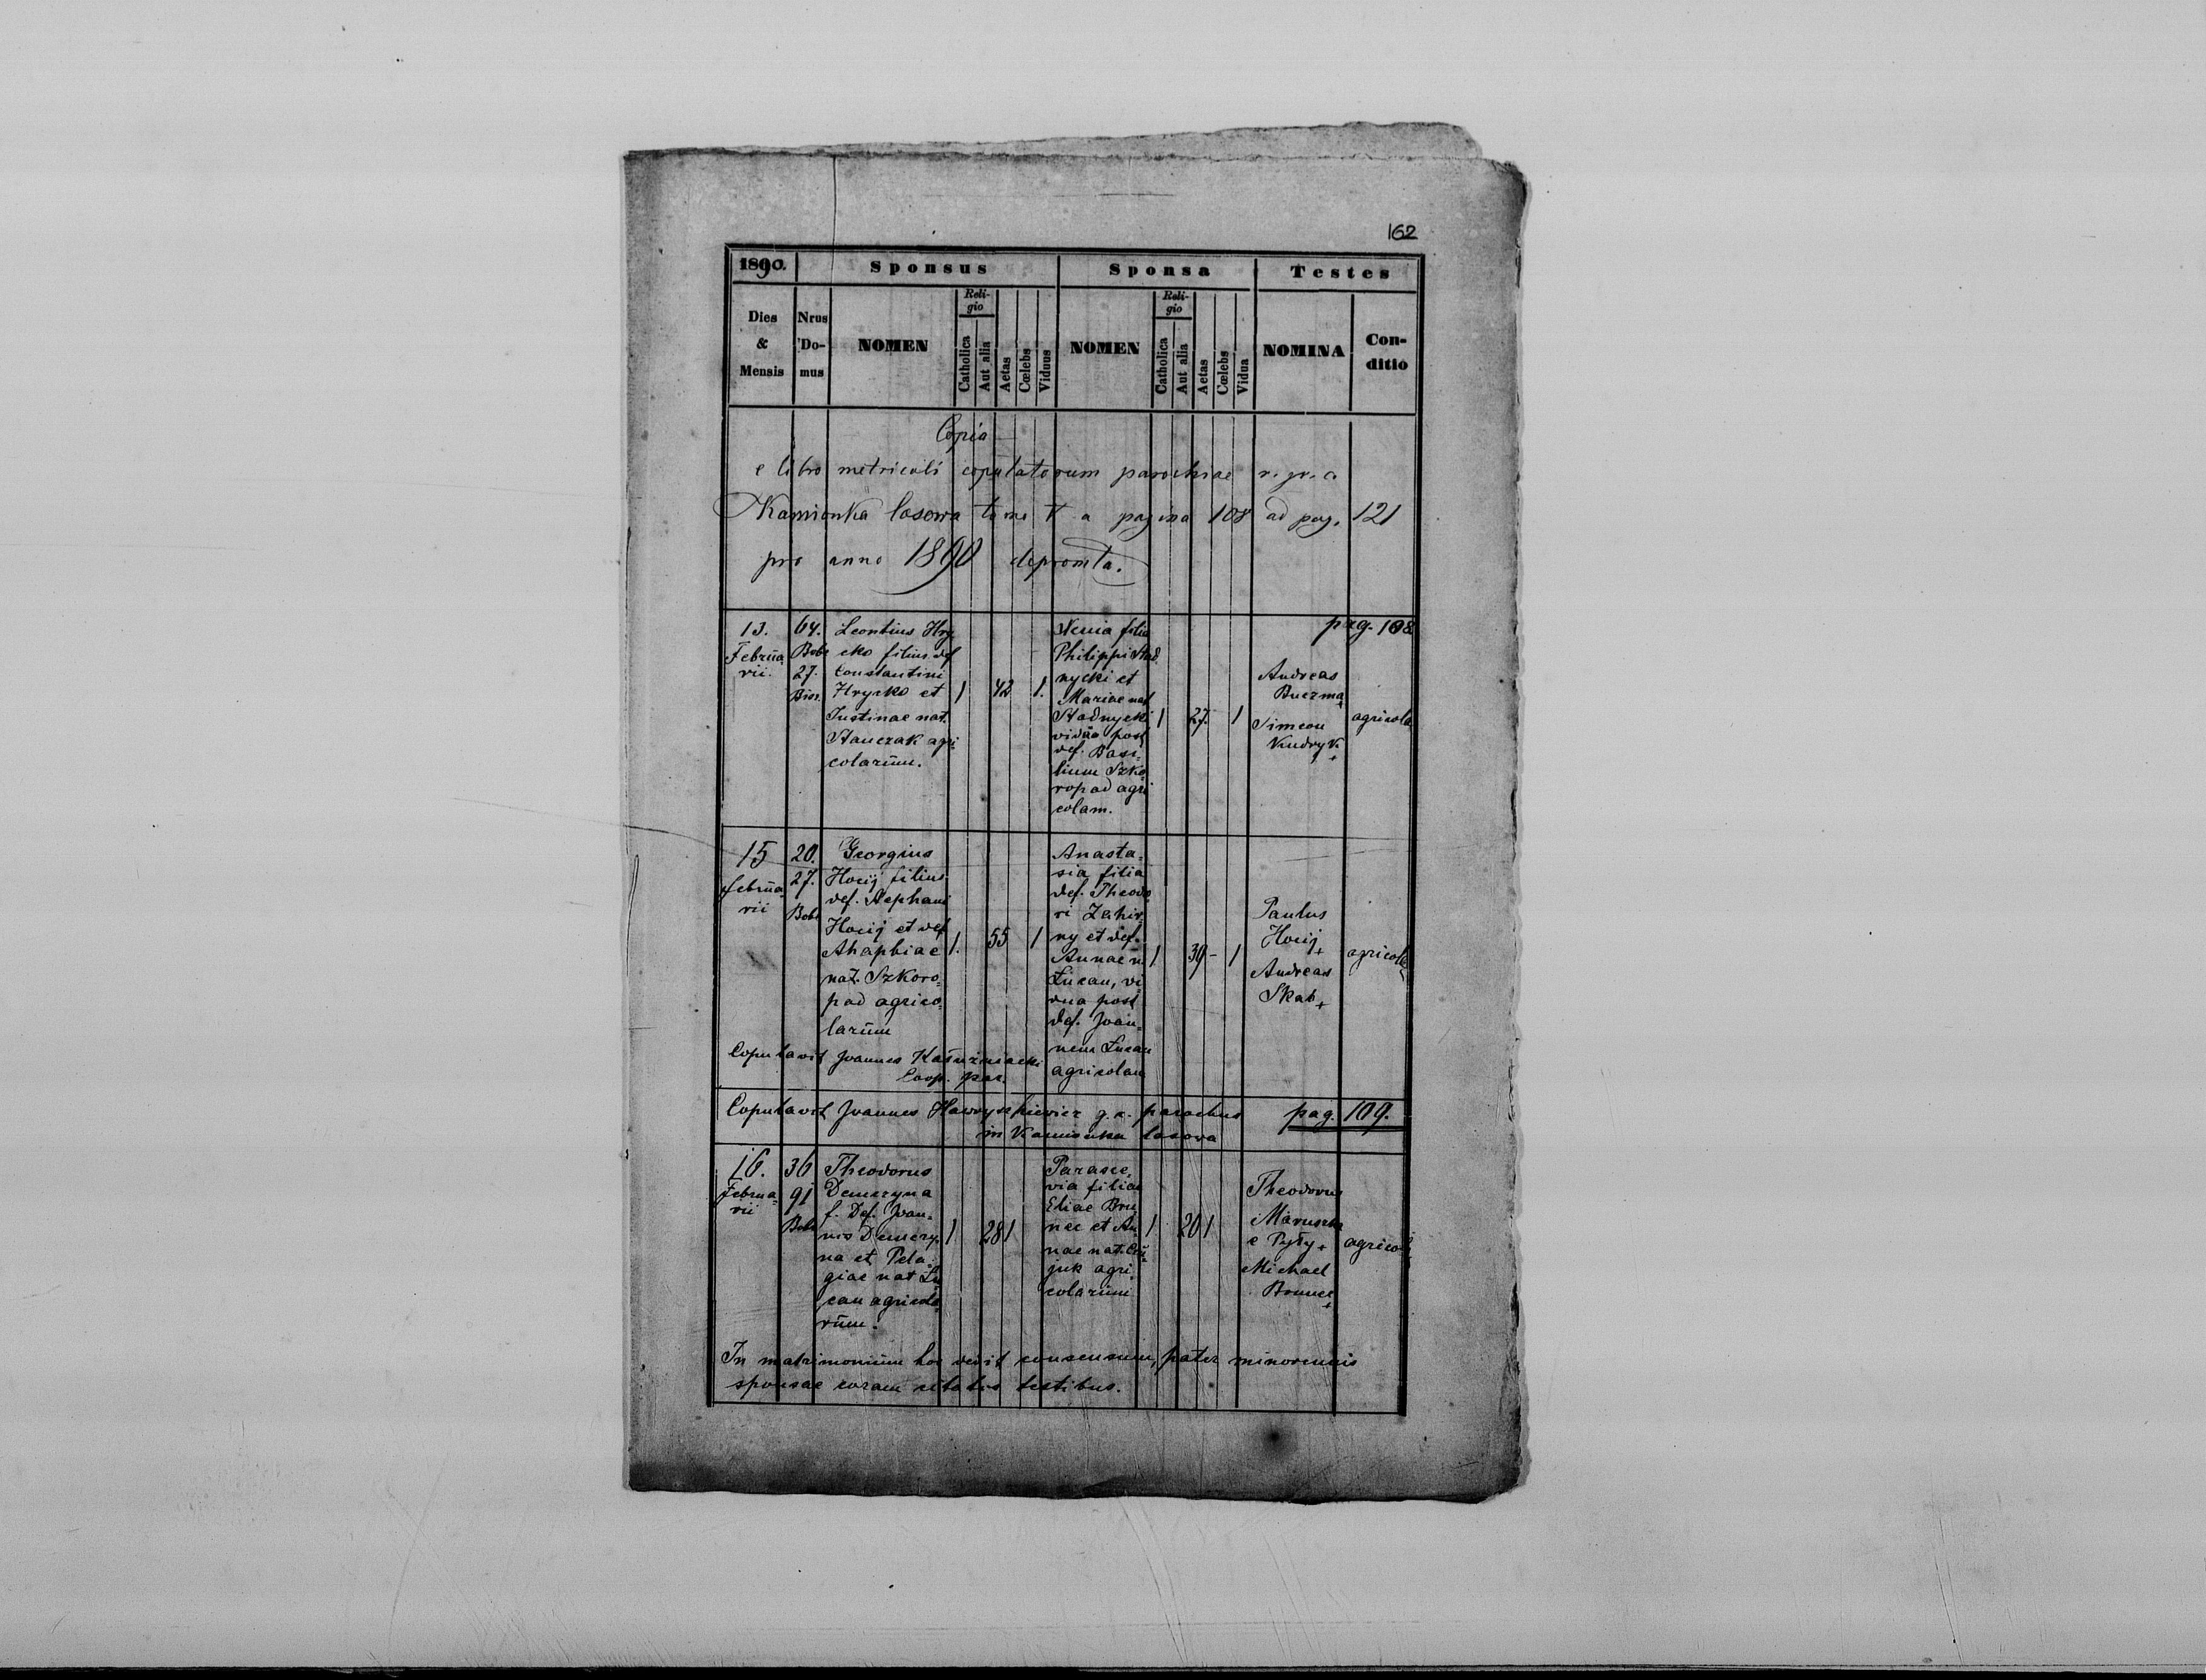 162
1890. Sponsus Sponsa Testes
Dies & Mensis
Nrus Domus
NOMEN
Religio
Catholica
Aut alia
Aetas
Cœlebs
Viduus
NOMEN
Religio
Catholica
Aut alia
Aetas
Cœlebs
Vidua
NOMINA
Conditio
Copia
e libro metricali copulatorum parochiae r. gr. c.
Kamionka lasowa tomo V a pagina 108 ad pag. 121
pro anno 1890 depromta.
pag. 108
13.
Februa
rii.
64.
Bobr
27.
Leontius Hry
cko filius def
Constantini
Hrycko et
Justinae nat.
Stanczak agri
colarum.
1
42
1.
Xenia filia
Philippi Stad
nycki et
Mariae nat
Stadnycki
vidua post
def. Basi-
lium Szko-
ropad agri
colam.
1
27.
1
Andreas
Buczma
Simeon
Kudryk
+
agricola
15
Februa
rii
20.
27.
Bobr
Georgius
Hocij filius
def. Stephani
Hocij et def
Ahaphiae
nat. Szkoro-
pad agrico-
larum
1.
55
1
Anasta-
sia filia
def. Theodo
ri Zahir-
ny et def.
Annae n.
Łucan, vi-
dua post
def. Joan-
nem Łucan
agricolam
1
39 -
1
Paulus
Hocij +
Andreas
Skab +
agricolae
Copulavit Joannes
Coop. par.
Copulavit Joannes g. c. parochus
in Kamionka lasowa
pag. 109.
16.
Februa-
rii
36
91
Bobr
Theodorus
Demczyna
f. Def. Joan-
nis Demczy-
na et Pela-
giae nat Łu
can agricola
rum.
1
28
1
Parasce-
via filia
Eliae Bru
nec et An-
nae nat.
juk agri-
colarum
1
20
1
Theodorus
e Pyły +
Michael
Brunec
+
agricol
In matrimonium hoc dedit consensum, pater minorennis
sponsae coram citatis testibus.